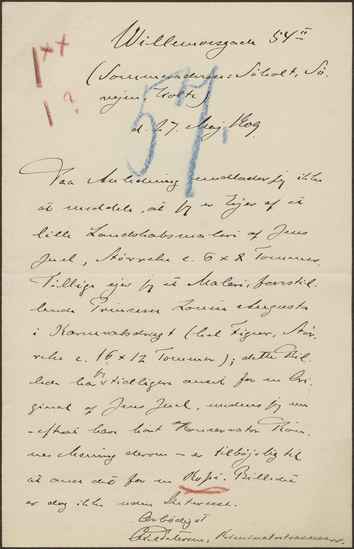 1 ++
1 ?
57.
Willemoesgade 54 II
(Sommeradresse: Søholt, Sø-
vejen, Holte)
d. 27. Maj 1909
Paa Anledning undlader jeg ikke
at meddele, at jeg er Ejer af et
lille Landskabsmaleri af Jens
Juel, Størrelse c. 6 x 8 Tommer.
Tillige ejer jeg et Maleri, forestil-
lende Prinsesse Louise Augusta
i Karnevalsdragt (hel Figur, Stør-
relse c. 16 x 12 Tommer); dette Bil-
lede har tidligere været anset for en Ori-
ginal af Jens Juel, medens jeg nu
efter at have hørt Konservator
Mening derom er tilbøjelig til
at anse det for en Kopi. Billedet
er dog ikke uden Interesse.
Ærbødigst
Kriminalassessor.